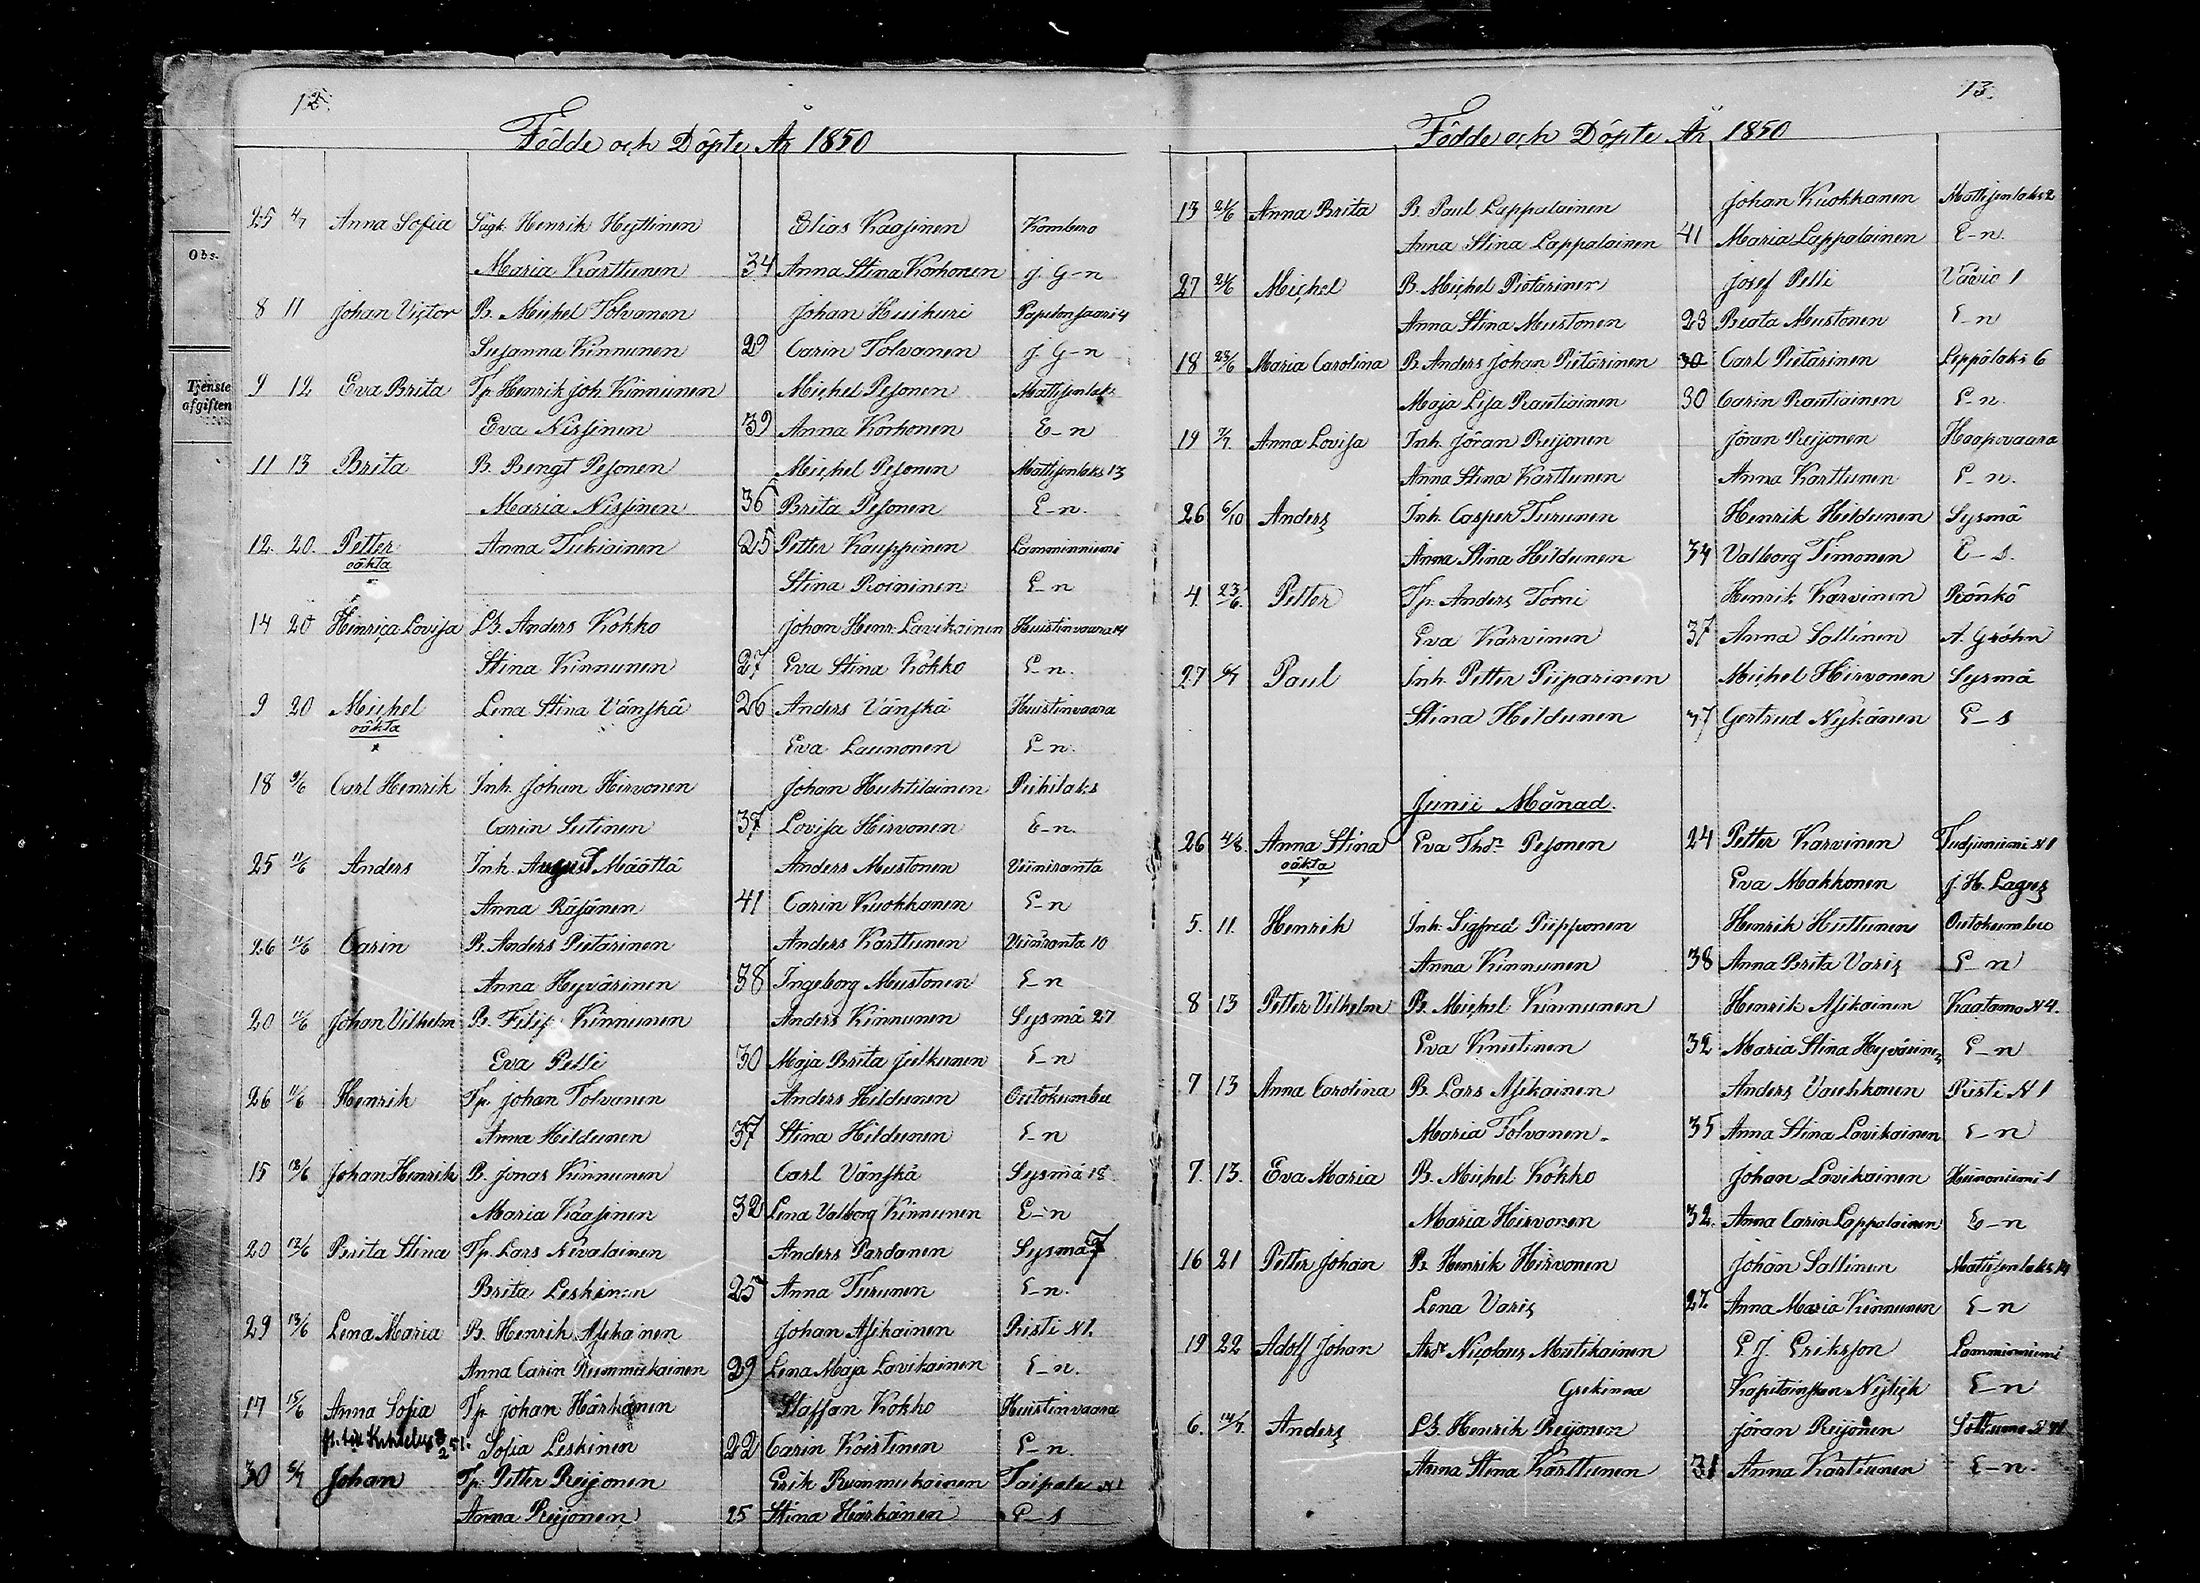 12.
Födde och Döpte År 1850
Obs.
Tjenste
afgiften
25 4/7 Anna Sofia Henrik Heyttinen Elias Kaasinen Kombero
Maria Karttunen 34 Anna Stina Korhonen J. G-n
8 11 Johan Victor B. Michel Tolvanen Johan Huikuri Papelonsaari 4
Susanna Kinnunen 29 Carin Tolvanen J. G-n
9 12 Eva Brita Tp. Henrik Joh. Kinnunen Michel Pesonen Mattisenlaks
Eva Nissinen 39 Anna Korhonen E-n
11 13 Brita B. Bengt Pesonen Michel Pesonen Mattisenlaks 13
Maria Nissinen 36 Brita Pesonen E-n.
12. 20. Petter Anna Tukiainen 25 Petter Kauppinen Lamminniemi
oäkta
Stina Roininen E-n
14 20 Hinrica Lovisa Anders Kokko Johan Henr. Lavikainen Huistinvaara 14
Stina Kinnunen 27 Eva Stina Kokko E-n.
9 20 Michel Lena Stina Vänskä 26 Anders Vänskä Huistinvaara
oäkta
Eva Launonen E-n.
18 9/6 Carl Henrik Inh. Johan Hirvonen Johan Huhtilainen Piihilaks
Carin Sutinen 37 Lovisa Hirvonen E-n.
25 11/6 Anders Inh. August Määttä Anders Mustonen Viiniranta
Anna Räsänen 41 Carin Kuokkanen E-n
26 11/6 Carin B. Anders Pietarinen Anders Karttunen Viiniranta 10
Anna Heyvärinen 38 Ingeborg Mustonen E-n
20 11/6 Johan Vilhelm B. Filip Kinnunen Anders Kinnunen Sysmä 27
Eva Pelli 30 Maja Brita Jielkunen E-n
26 11/6 Henrik Tp. Johan Tolvanen Anders Hildunen Outokumbu
Anna Hildunen 37 Stina Hildunen E-n
15 12/6 Johan Henrik B. Jonas Kinnunen Carl Vänskä Sysmä 18.
Maria Kaasinen 32 Lena Valborg Kinnunen E-n
20 12/6 Brita Stina Tp. Lars Nevalainen Anders Pardanen Sysmä 7
Brita Leskinen 25 Anna Turunen E-n.
29 13/6 Lena Maria B. Henrik Asikainen Johan Asikainen Risti N1.
Anna Carin Rummukainen 29 Lena Maja Lavikainen E-n.
17 15/6 Anna Sofia Tp. Johan Härkönen Staffan Kokko Huistinvaara
Sofia Leskinen 22 Carin Koistinen E-n.
30 Johan Tp. Petter Reijonen Erik Rummukainen Taipale N1
Anna Reijonen 25 Stina Härkönen E-s
13.
Födde och Döpte År 1850
13 21/6 Anna Brita B. Paul Lappalainen Johan Kuokkanen Mattisenlaks 2
Anna Stina Lappalainen 41 Maria Lappalainen E-n.
27 21/6 Michel B. Michel Pietarinen Josef Pelli Vävie 1
Anna Stina Mustonen 23 Beata Mustonen E-n
18 23/6 Maria Carolina B. Anders Johan Pietärinen 30 Carl Pietärinen Leppälaks 6
Maja Lisa Rautiainen 30 Carin Rautiainen E-n.
19 7/7 Anna Lovisa Inh. Jöran Reijonen Jöran Reijonen Haapovaara
Anna Stina Karttunen Anna Karttunen E-n.
26 6/10 Anders Inh. Casper Turunen Henrik Hildunen Sysmä
Anna Stina Hildunen 34 Valborg Timonen E-s.
4 23/6. Petter Tp. Anders Torni Henrik Karvinen Rönkö
Eva Karvinen 37 Anna Sallinen A. Gröhn
27 Paul Inh. Petter Piiparinen Michel Hirvonen Sysmä
Stina Hildunen 37 Gertrud Nykänen E-s
Junii Månad.
26 4/8 Anna Stina Eva Thdr. Pesonen 24 Petter Karvinen N1
oäkta
Eva Makkonen J. H. Lagus
5. 11. Henrik Inh. Sigfred Piipponen Henrik Huttunen Outokumbu
Anna Kinnunen 38 Anna Brita Varis E-n
8 13 Petter Vilhelm B. Michel Kinnunen Henrik Asikainen Kaatamo N4.
Eva Knuutinen 32 Maria Stina Heyvärinen E-n
7 13 Anna Carolina B. Lars Asikainen Anders Vauhkonen Risti N1
Maria Tolvanen. 35 Anna Stina Lavikainen E-n
7. 13. Eva Maria B. Michel Kokko Johan Lavikainen Heinoniemi 1
Maria Hirvonen 32. Anna Carin Lappalainen E-n
16 21 Petter Johan B. Henrik Hirvonen Johan Sallinen Mattisenlaks 14
Lena Varis 27. Anna Maria Kinnunen E-n
19 22 Adolf Johan Nicolaus Mutikainen E. J. Eriksson Lamminniemi
Grekinna E-n
6. 14/7. Anders Henrik Reijonen Jöran Reijonen
Anna Stina Karttunen 31 Anna Karttunen E-n.